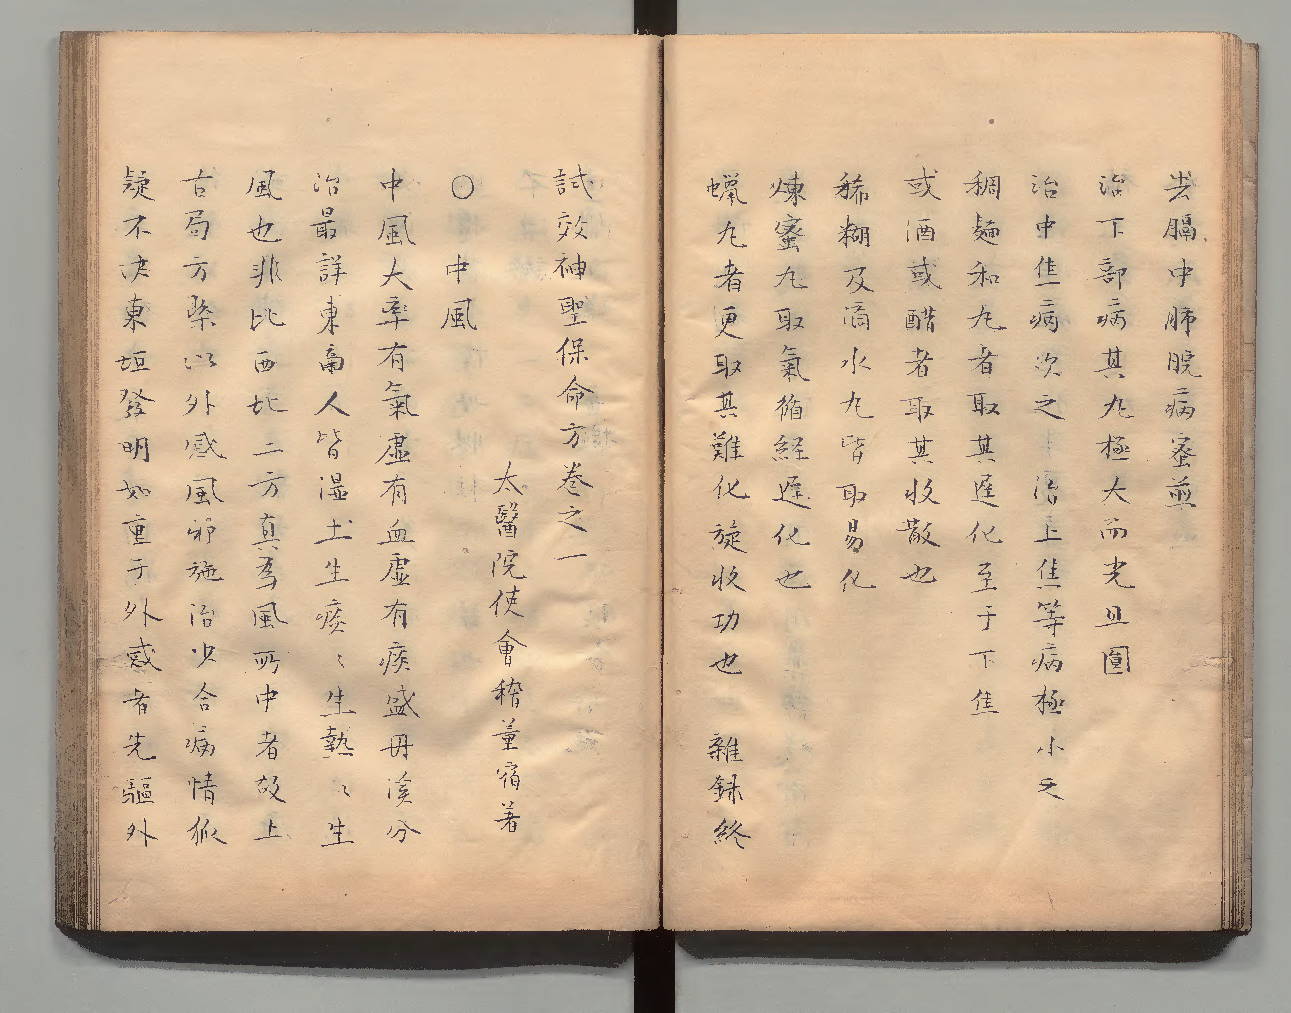 去膈中肺脘病蜜煎
治下部病其丸極大而光且圓
治中焦病次之 治上焦等病極小之
稠麺和丸者取其遅化至于下焦
或酒或醋者取其收散也
稀糊及滴水丸皆取易化
煉蜜丸取氣循経遅化也
蠟丸者更取其難化旋收功也 雜録終
試效神聖保命方巻之一
太醫院使會稽董宿著
〇中風
中風大率有氣虚有血虚有痰盛丹溪分
治最詳東南人皆湿土生痰〻生熱〻生
風也非比西北二方真為風所中者故上
古局方槩以外感風邪施治少合病情狐
疑不决東垣發明如重于外感者先驅外